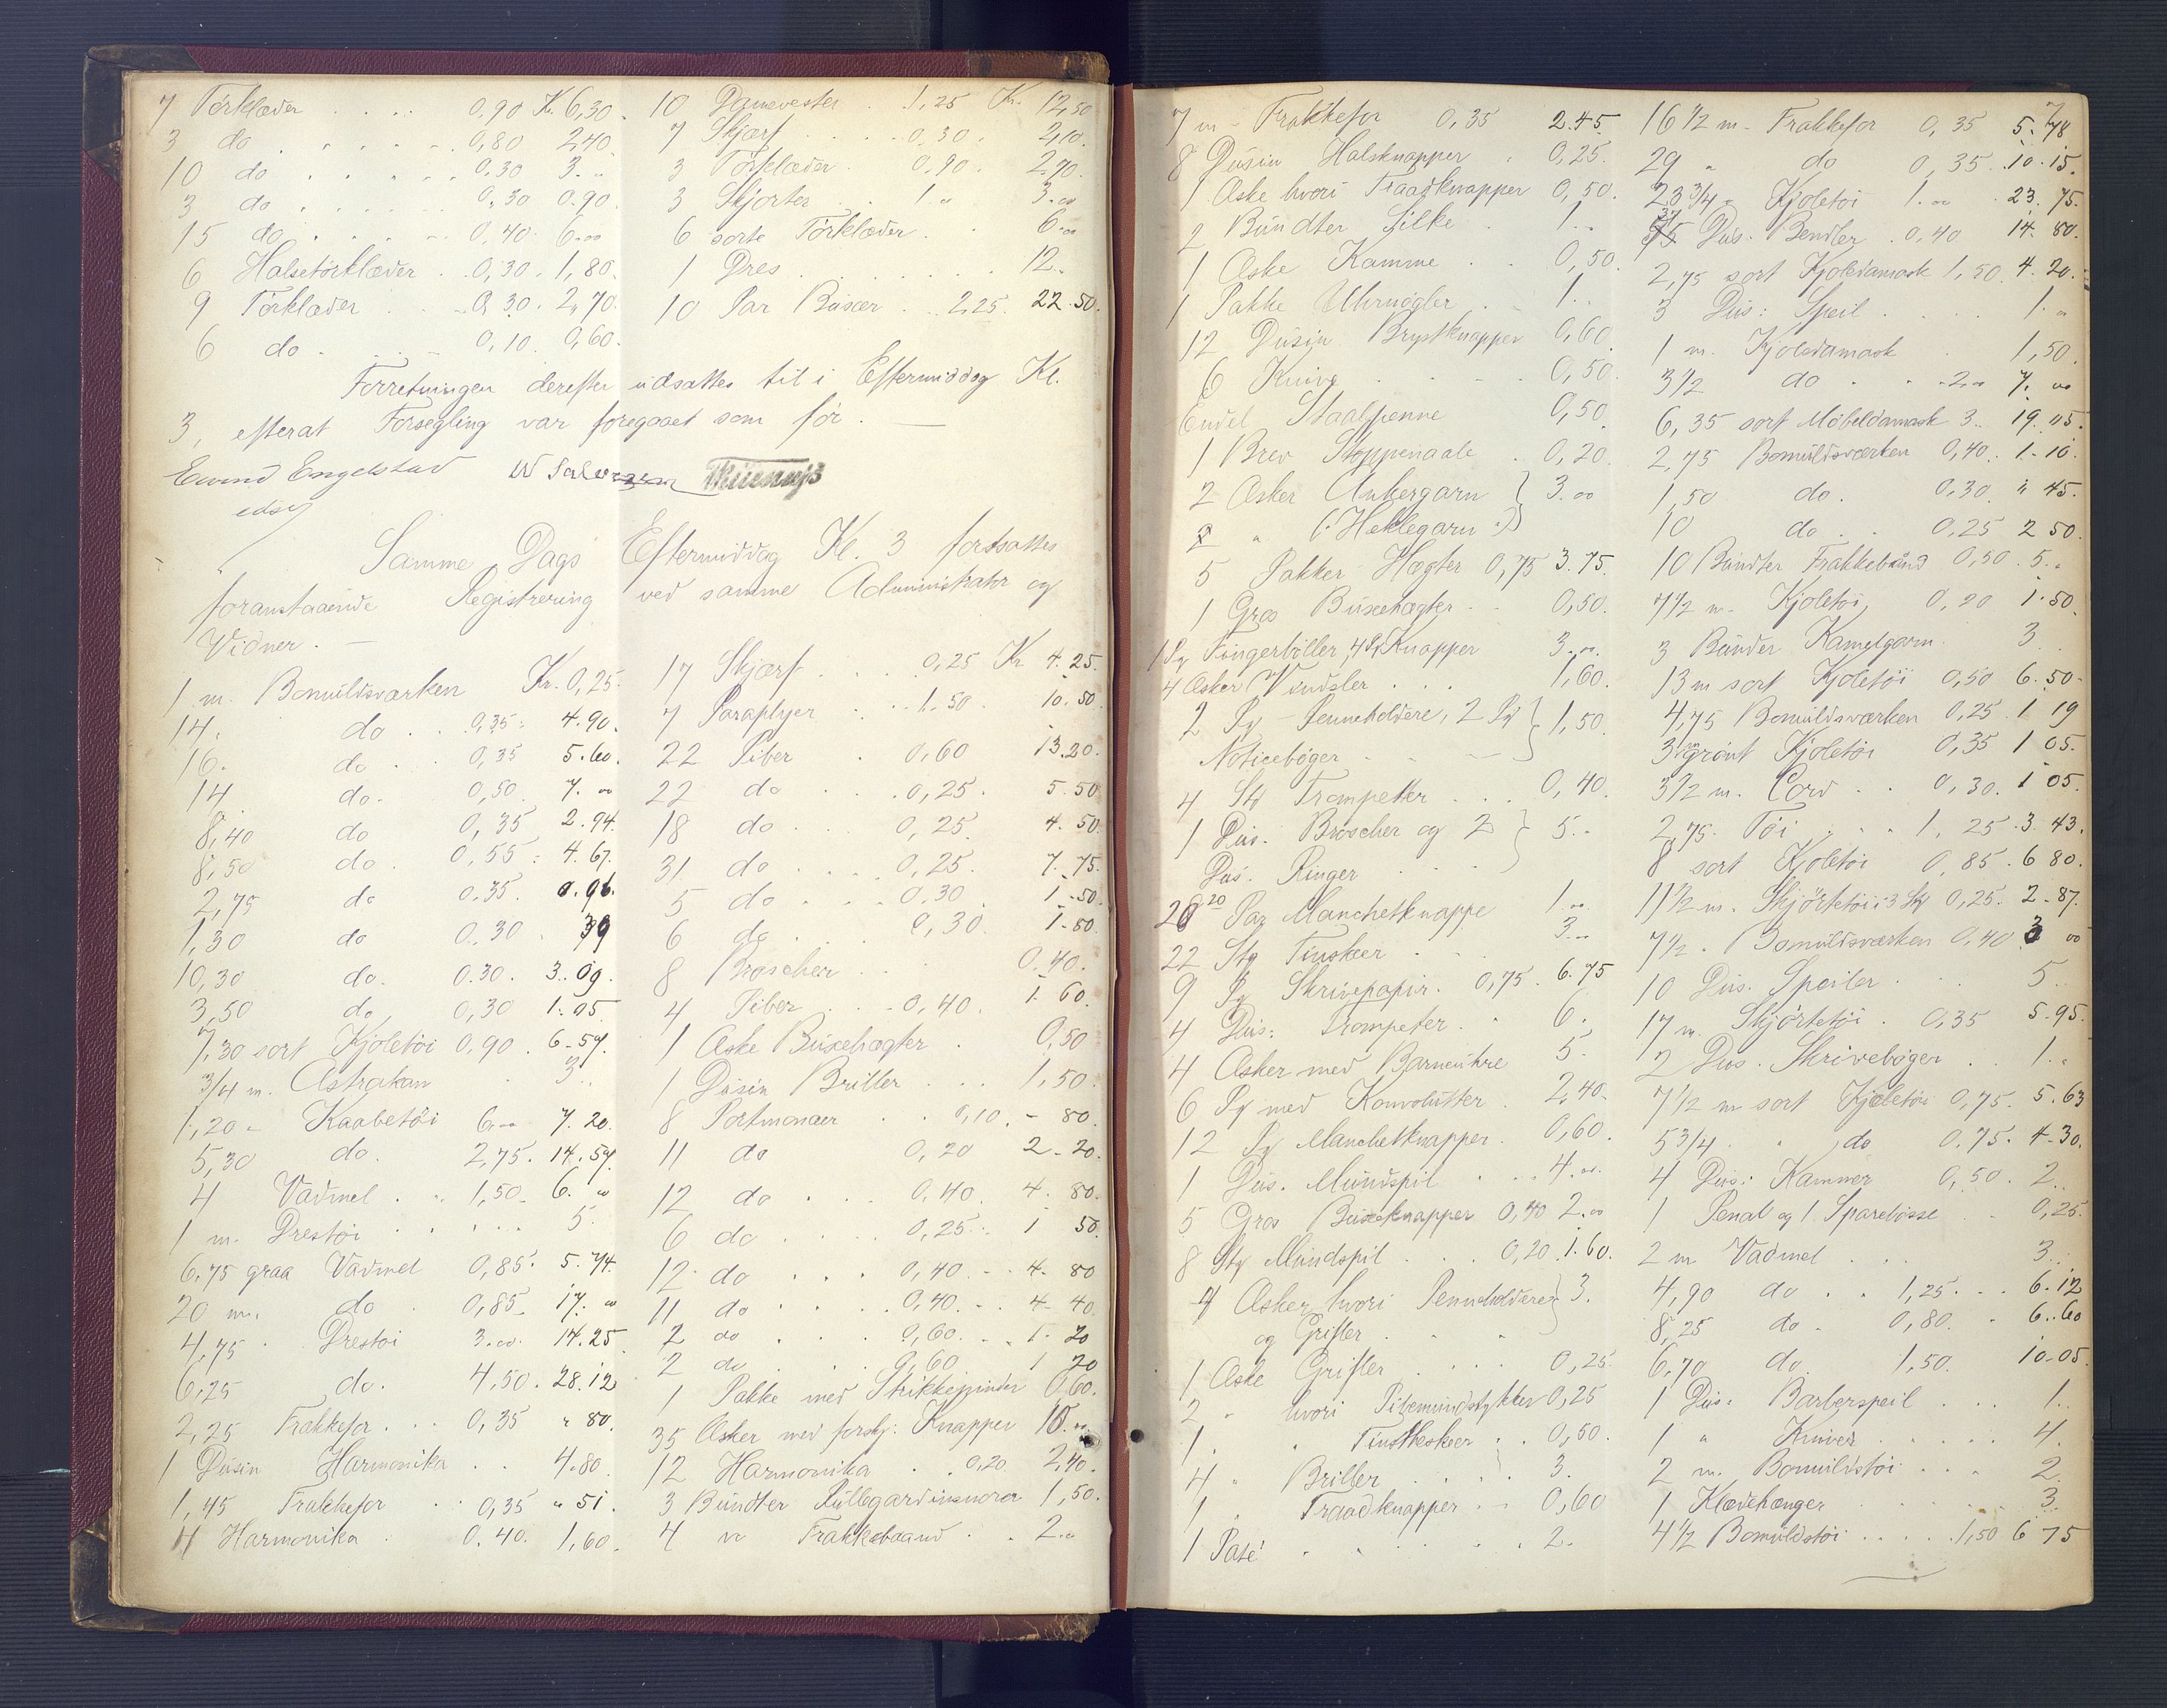 7 Törklæder . . . . 0,90 Kr. 6,30.
3 do . . . . . 0,80 2,40
10 do . . . . . 0,30 3. "
3 do . . . . . 0,30 0.90
15 do . . . . . 0,40. 6.00
6 Halsetörklæder . 0,30. 1,80.
9 Törklæder . . 0,30. 2,70.
6 do . . . . 0,10. 0,60.
10 Damevester . 1,25 Kr. 12,50
7 Skjærf . . . 0,30. 2,10.
3 Törklæder . 0.90. 2.70.
3 Skjorter . . 1 " 3.00
6 sorte Törklæder . . 6.00
1 Dres . . . . . . . 12.
10 Par Buxer . . 2,25. 22.50.
Forretningen derefter udsattes til i Eftermiddag Kl.
3, efterat Forsegling var foregaaet som för. —
Eivind Engelstad W Salvesen
edsv
Samme Dags Eftermiddag Kl. 3 fortsattes
foranstaaende Registrering ved samme Administrator og
Vidner. —
1 m. Bomuldsværken Kr. 0,25.
14. do . . 0,35. 4.90.
16. do . . 0,35 5.60.
14 do. 0,50 7. 00
8,40 do 0,35 2.94.
8,50 do . 0,55. 4.67.
2,75 do 0.35. 0.96.
1,30 do 0.30 . 39
10,30 do. 0.30. 3.09.
3,50 do 0,30 1.05.
7,30 sort Kjoletöi 0,90. 6-57.
3/4 m. Astrakan . 3..
1,20 - Kaabetöi 6.00 7.20.
5,30 do. 2,75. 14.57.
4 Vadmel . . 1,50. 6. 00
1 m. Drestöi . . . . 5.
6.75 graa Vadmel 0,85. 5.74.
20 m. do . 0,85. 17. 00
4,75 . Drestöi 3.00. 14.25
6,25 do. 4,50. 28.12
2,25 Frakkefor . . 0,35 " 80.
1 Dusin Harmonika . . 4.80
1,45 Frakkefor . . 0,35 " 51.
4 Harmonika . 0.40. 1,60.
17 Skjærf . . . 0,25 Kr 4.25.
7 Paraplyer . . 1.50 . 10.50
22 Piber . 0,60 13.20.
22 do . . . 0,25. 5.50
18 do . . 0,25. 4.50.
31 do . . . 0,25. 7.75.
5 do . . . 0,30 . 1.50.
6 do . . . 0,30. 1.50
8 Broscher . . . 0.40.
4 Piber . . . 0,40. 1.60.
1 Æske Buxehægter . 0,50
1 Dusin Briller . . . 1,50.
8 Portmonæer . . 0,10. - 80.
11 do 0,20 2-20.
12 do . . . 0,40. 4. 80.
6 do . . . . 0,25. 1 50.
12 do . . . 0,40. - 4. 80
11 do . . . . 0,40. - . 4. 40.
2 do . . . 0,60. - . 1. 20
2 do . . . 0,60 1 20
1 Pakke med Strikkepinder 0,60.
35 Æsker med forskj: Knapper 10.00
12 Harmonika . . 0,20 2,40.
3 Bundter Rullegardinsnorer 1,50.
4 m Frakkebaand . . 2.00
7 m - Frakkefor 0,35 2.45.
8 Dusin Halsknapper . 0,25.
1 Æske hvori Traadknapper 0,50.
2 Bundter Silke . 1...
1 Æske Kamme . . 0,50.
1 Pakke Uhrnögler . 1...
12 Dusin Brystknapper 0,60.
6 Knive . . . . . 0,50.
Endel Staalpenne 0,50.
1 Brev Stoppenaale . 0,20.
2 Æsker Ankergarn } 3.00
2 " (: Heklegarn :)
5 Pakker Hægter 0,75 3.75.
1 Gros Buxehægter . . 0,50.
1 Pg Fingerböller, 4 Pg Knapper 3.00.
4 Æsker Vindsler . . . 1,60.
2 Pg Penneholdere, 2 Pg } 1,50.
Noticeböger . . —
4 Stg Trompetter . . . 0,40.
1 Dus. Broscher og 2 } 5..
Dus. Ringer . . . .
20 Par Manchetknappe 1..
22 Stg Tinskeer . . 3..
9 Pg Skrivepapir. 0,75. 6.75
4 Dus: Trompeter . . 6.
4 Æsker med Barneuhre 5.
6 Pg med Konvolutter . 2,40.
12 Pg Manchetknapper. 0,60.
1 Dus. Mundspil . . . 4.00.
5 Gros Buxeknapper 0,40 2.00
8 Stg Mundspil . . 0,20. 1.60.
4 Æsker hvori Penneholdere } 3.
og Grifler . . .
1 Æske Grifler . . . . 0,25
2 " hvori Pibemundstykker 0,25
1. " Tintheskeer . . 0,50.
4 " Briller . . . . . 3.
1 " Traadknapper . . 0,60
1 Paté . . . . . . 2.
7
16 1/2 m - Frakkefor 0,35 5.78
29 " do 0,35. 10.15.
23 3/4 " Kjoletöi 1.00 . 23. 75.
37 Dus: Bendler . 0,40 14. 80.
2,75 sort Kjoledamask 1,50. 4. 20.
3 Dus: Speil . . . . 1..
1 m. Kjoledamask . 1,50.
3 1/2 do . . . 2.00 7. 00
6,35 sort Möbeldamask 3.. 19.05.
2,75 Bomuldsværken 0,40. 1.10.
1,50 do. 0,30. " 45.
10 do . . 0,25 2 50.
10 Bundter Frakkebånd 0,50. 5..
7 1/2 m. Kjoletöi 0,20 1.50.
3 Bunder Kamelgarn. 3
13 m sort Kjoletöi 0,50 6.50
4,75 Bomuldsværken 0,25. 1 19
3 m grönt Kjoletöi 0,35 1 05.
3 1/2 m. Cord . . 0,30. 1 05.
2,75. Töi . . . 1, 25. 3. 43.
8 sort Kjoletöi 0,85. 6 80.
11 1/2 m. Skjörtetöi i 3 Stg 0,25. 2-87.
7 1/2 . Bomuldsværken 0,40. 3 00
10 Dus. Speiler . . . 5
17 m. Skjörtetöi . 0,35 5-95.
2 Dus. Skriveböger . . 1..
7 1/2 m sort Kjoletöi 0,75. 5.63
5 3/4 . " do 0,75. 4-30.
4 Dus: Kammer 0,50. 2..
1 Penal og 1 Sparebösse . 0,25.
2 m Vadmel . . . 3..
4,90 do . . 1,25. . . 6.12
8,25 do . 0,80. . 6..60
6,70 do. 1,50. 10-05.
1 Dus: Barberspeil . . . 1..
1 " Kniver . . . . 4.
2 m. Bomuldstöi . . . 2.
1 Klædehænger . . . . 3.
4 1/2 Bomuldstöi . . . . 1,50 6 75